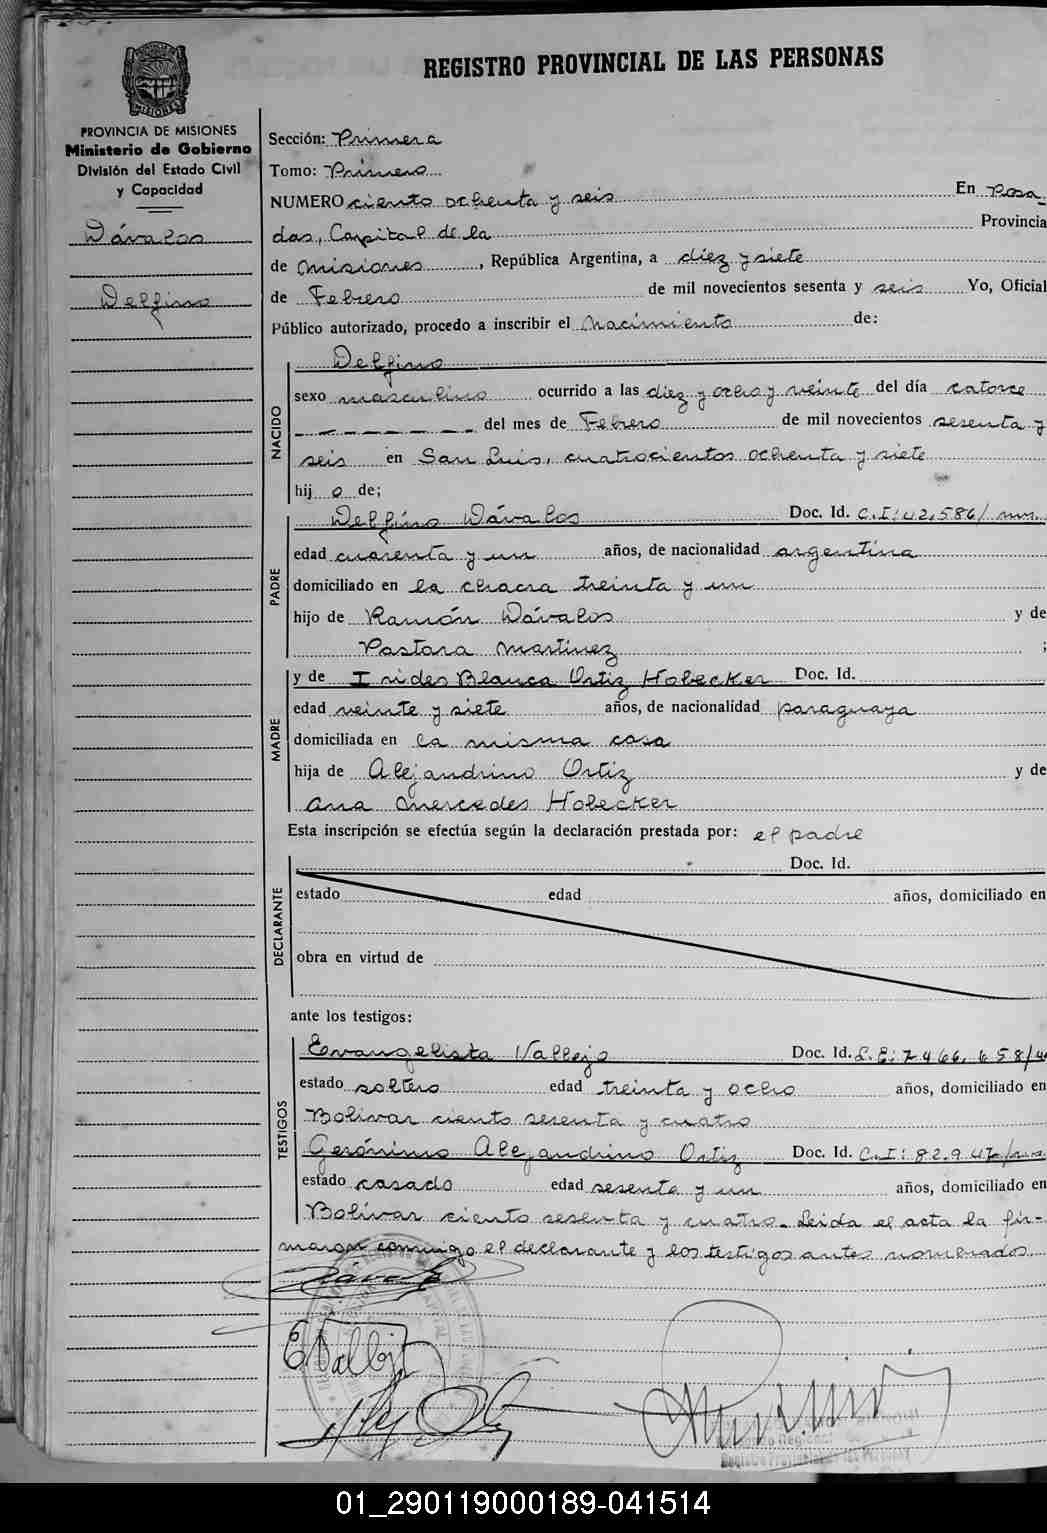 REGISTRO PROVINCIAL DE LAS PERSONAS
PROVINCIA DE MISIONES
Ministerio de Gobierno
División del Estado Civil
y Capacidad
Dávalos
Delfino
Sección: Primera
Tomo: Primero
NUMERO ciento ochenta y seis En Posa_
das, Capital de la Provincia
de Misiones, República Argentina, a diez y siete
de Febrero de mil novecientos sesenta y seis Yo, Oficial
Público autorizado, procedo a inscribir el nacimiento de:
NACIDO
Delfino
sexo masculino ocurrido a las diez y ocho y veinte del día catorce
del mes de Febrero de mil novecientos sesenta y
seis en San Luis, cuatrocientos ochenta y siete
hij o de;
PADRE
Delfino Dávalos Doc. Id. C.I: 42.586/mns.
edad cuarenta y un años, de nacionalidad argentina
domiciliado en la chacra treinta y un
hijo de Ramón Dávalos y de
Pastora Martinez ;
MADRE
y de Irides Blanca Ortiz Hobecker Doc. Id.
edad veinte y siete años, de nacionalidad paraguaya
domiciliada en la misma casa
hija de Alejandrino Ortiz y de
Ana Mercedes Hobecker
Esta inscripción se efectúa según la declaración prestada por: el padre
DECLARANTE
Doc. Id.
estado edad años, domiciliado en
obra en virtud de
ante los testigos:
TESTIGOS
Evangelista Vallejo Doc. Id. L.E: 7.466.658/
estado soltero edad treinta y ocho años, domiciliado en
Bolivar ciento sesenta y cuatro
Gerónimo Alejandrino Ortiz Doc. Id. C.I: 82.947/mns
estado casado edad sesenta y un años, domiciliado en
Bolívar ciento sesenta y cuatro. Leida el acta la fir-
maron conmigo el declarante y los testigos antes nombrados.
Dávalos
E Vallejo
01_290119000189-041514